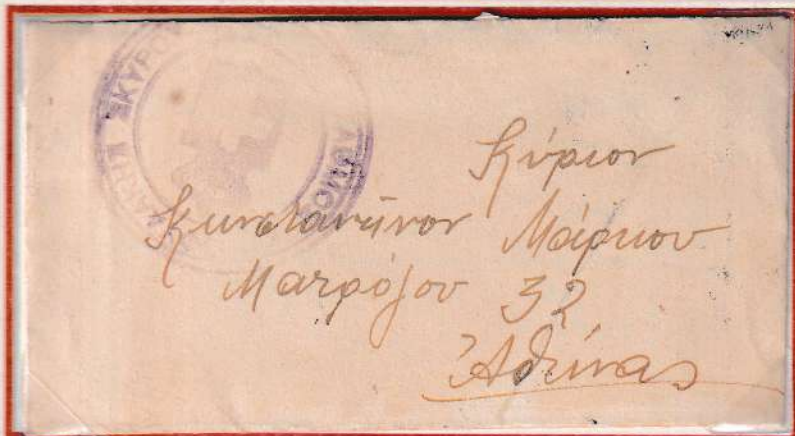 ΣΚΥΡΟΥ
Κύριον
Κωνσταντίνον Μάρκου
Ματρόζου 32
Ἀθήνας